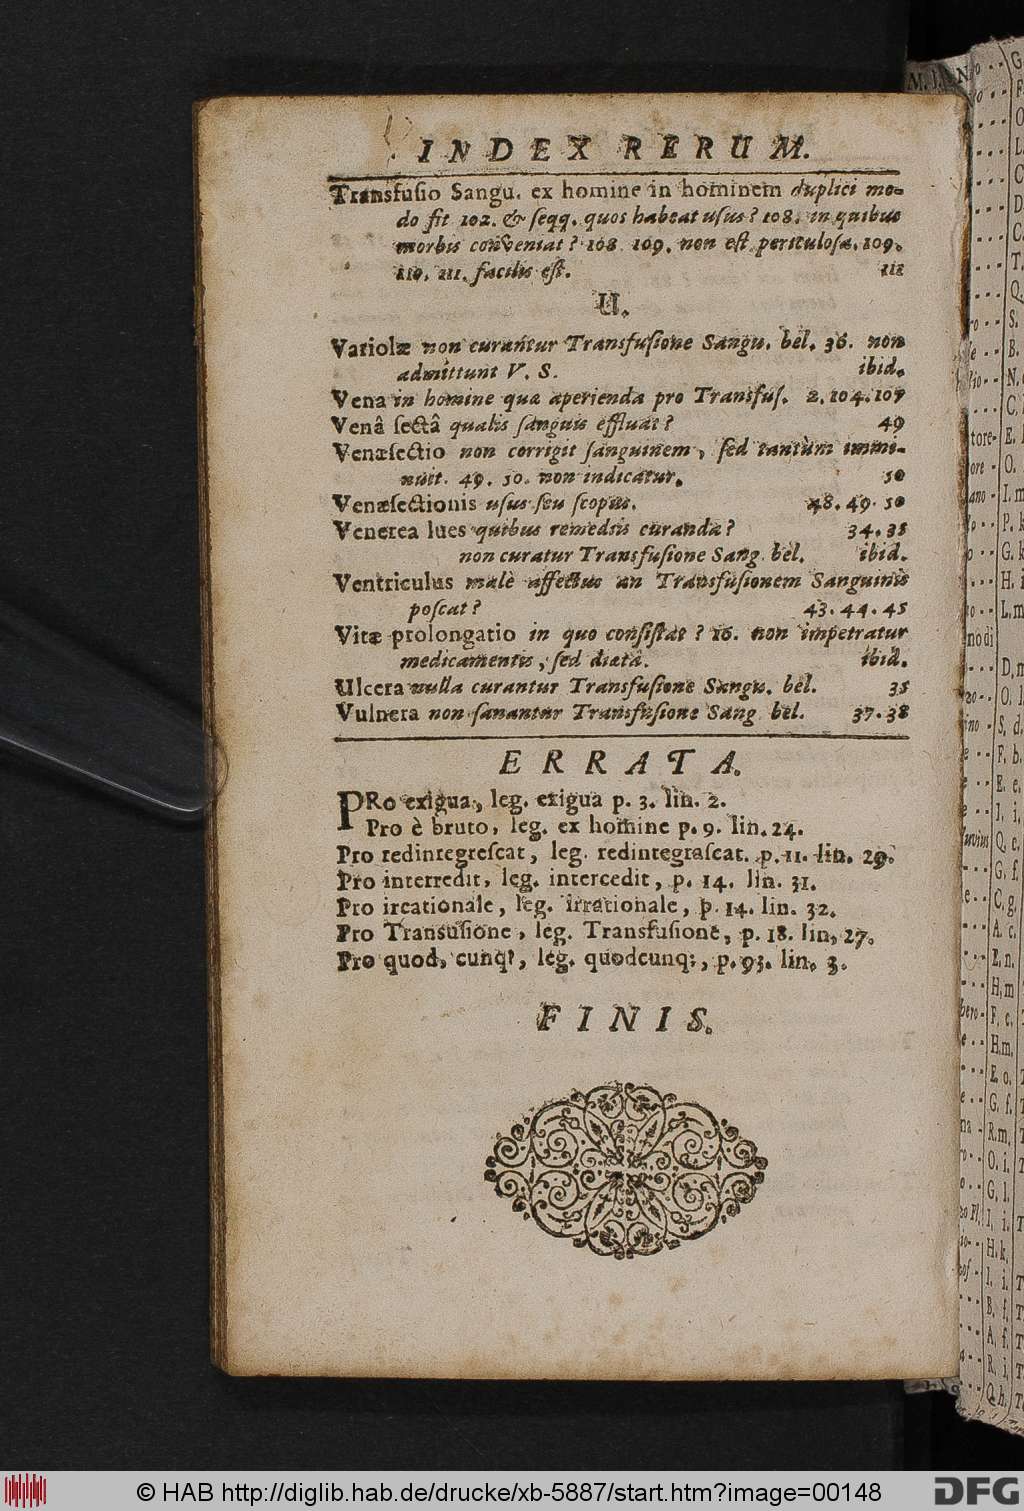 INDEX RERUM.
Transfusio Sangu. ex homine in hominem duplici mo-
do fit 102. & ſeqq. quos habeat uſus? 108. in quibus
morbis conveniat? 108 109. non eſt periculoſa. 109.
110. 111. facilis eſt. 111
U.
Variolæ non curantur Transfuſione Sangu. bel. 36. non
admittunt V. S. ibid.
Vena in homine quæ aperienda pro Transfuſ. 2. 104. 107
Venâ ſectâ qualis ſanguis effluat? 49
Venæſectio non corrigit ſanguinem, ſed tantùm immi-
nuit. 49. 50. non indicatur. 50
Venæſectionis uſus ſeu ſcopus. 48. 49. 50
Venerea lues quibus remediis curanda? 34. 35
non curatur Transfuſione Sang. bel. ibid.
Ventriculus malè affectus an Transfuſionem Sanguinis
poſcat? 43. 44. 45
Vitæ prolongatio in quo conſiſtat? 16. non impetratur
medicamentis, ſed diætâ. ibid.
Ulcera nulla curantur Transfuſione Sangu. bel. 35
Vulnera non ſanantur Transfuſione Sang bel. 37. 38
ERRATA.
PRo exigua, leg. exigua p. 3. lin. 2.
Pro è bruto, leg. ex homine p. 9. lin. 24.
Pro redintegreſcat, leg. redintegraſcat. p. 11. lin. 29.
Pro interredit, leg. intercedit, p. 14. lin. 31.
Pro ircationale, leg. irrationale, p. 14. lin. 32.
Pro Transuſione, leg. Transfuſione, p. 18. lin, 27.
Pro quod, cunq;, leg. quodcunq;, p. 93. lin. 3.
FINIS.
© HAB http://diglib.hab.de/drucke/xb-5887/start.htm?image=00148
DFG